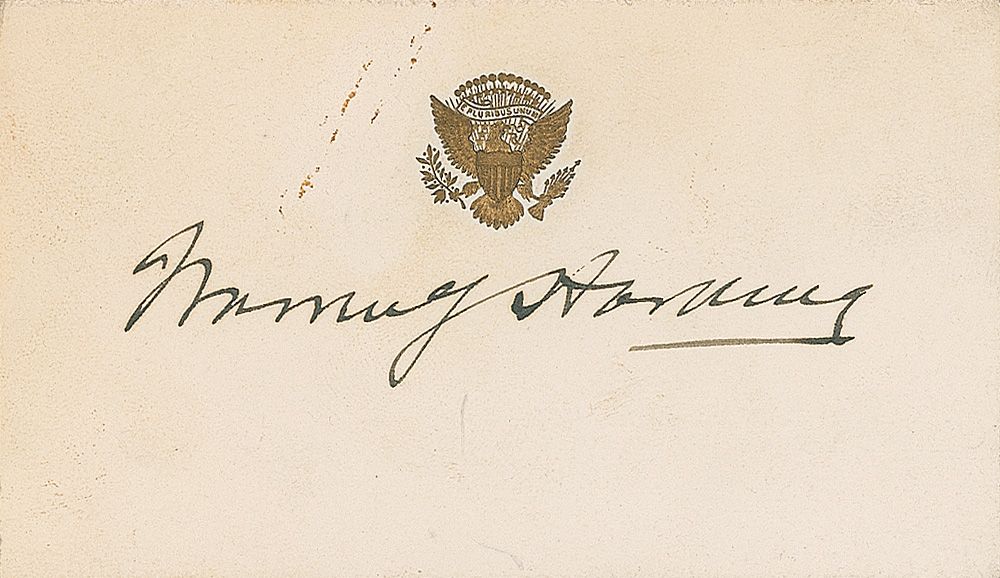 E PLURIBUS UNUM
Warren G Harding